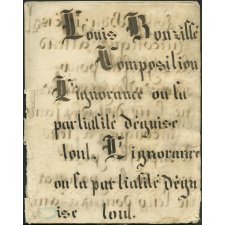 Louis Bouzille
Composition
L'ignorance ou la
partialité déguise
tout. L'ignorance
ou la partialité dégu
ise tout.